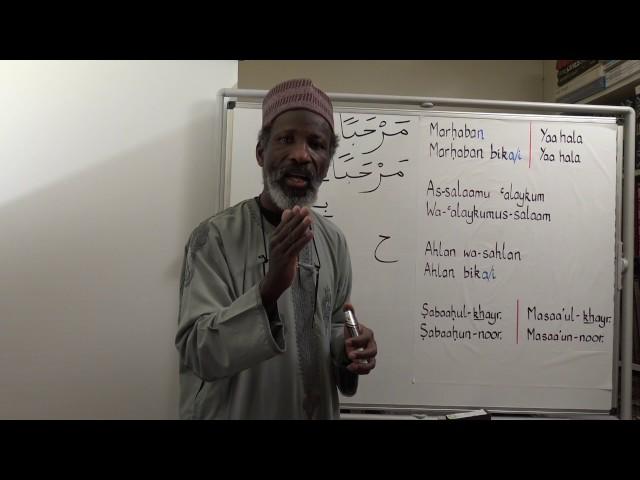 مَرْحَبًا
مَرْحَبًا
ح
Marḥaban | Yaa hala
Marḥaban bika/i | Yaa hala
As-salaamu ʿalaykum
Wa-ʿalaykumus-salaam
Ahlan wa-sahlan
Ahlan bika/i
Ṣabaaḥul-khayr. | Masaa'ul-khayr.
Ṣabaaḥun-noor. | Masaa'un-noor.